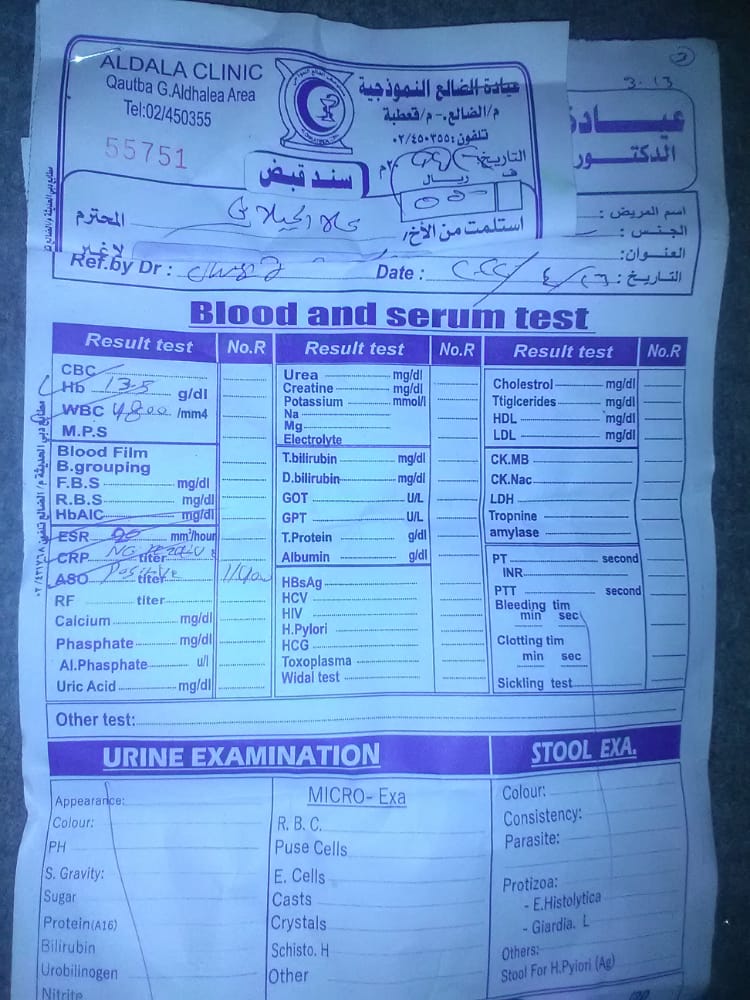 ALDALA CLINIC
Qautba G.Aldhalea Area
Tel:02/450355
55751
عيادة الضالع النموذجية
م/الضالع - م/قعطبة
تلفون: ٠٢/٤٥٠٣٥٥
التاريخ:
م٢
سند قبض
ريال
ف
استلمت من الأخ/
المحترم
لاغير
3.13
عيادة
الدكتور
اسم المريض :
الجنس :
العنوان:
التاريخ :
Ref.by Dr :
Date :
Blood and serum test
Result test No.R
CBC
Hb 13.5 g/dl
WBC 4800 /mm4
M.P.S
Blood Film
B.grouping
F.B.S mg/dl
R.B.S mg/dl
HbAIC mg/dl
ESR mm³/hour
CRP titer
ASO Positive titer
RF titer
Calcium mg/dl
Phasphate mg/dl
Al.Phasphate u/l
Uric Acid mg/dl
Result test No.R
Urea mg/dl
Creatine mg/dl
Potassium mmol/l
Na
Mg
Electrolyte
T.bilirubin mg/dl
D.bilirubin mg/dl
GOT U/L
GPT U/L
T.Protein g/dl
Albumin g/dl
HBsAg
HCV
HIV
H.Pylori
HCG
Toxoplasma
Widal test
Result test No.R
Cholestrol mg/dl
Ttiglcerides mg/dl
HDL mg/dl
LDL mg/dl
CK.MB
CK.Nac
LDH
Tropnine
amylase
PT second
INR
PTT second
Bleeding tim
min sec
Clotting tim
min sec
Sickling test
Other test:
URINE EXAMINATION
Appearance:
Colour:
PH
S. Gravity:
Sugar
Protein(A16)
Bilirubin
Urobilinogen
Nitrite
MICRO- Exa
R. B. C.
Puse Cells
E. Cells
Casts
Crystals
Schisto. H
Other
STOOL EXA.
Colour:
Consistency:
Parasite:
Protizoa:
- E.Histolytica
- Giardia. L
Others:
Stool For H.Pyiori (Ag)